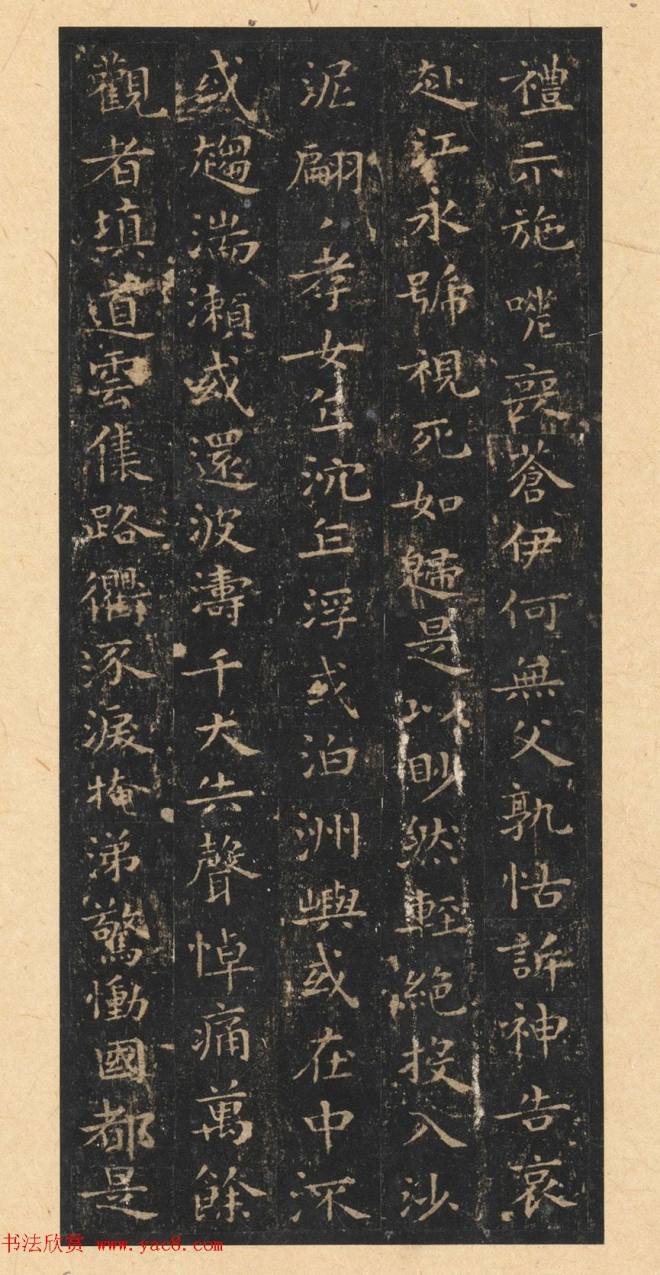 禮示施嗟喪蒼伊何無父孰怙訴神告哀
赴江永號視死如歸是以眇然輕絕投入沙
泥翩丶孝女乍沉乍浮或泊洲嶼或在中流
或趨湍瀨或還波濤千夫失聲悼痛萬餘
觀者填道雲集路衢泳淚掩涕驚慟國都是
书法欣赏 www.yac8.com